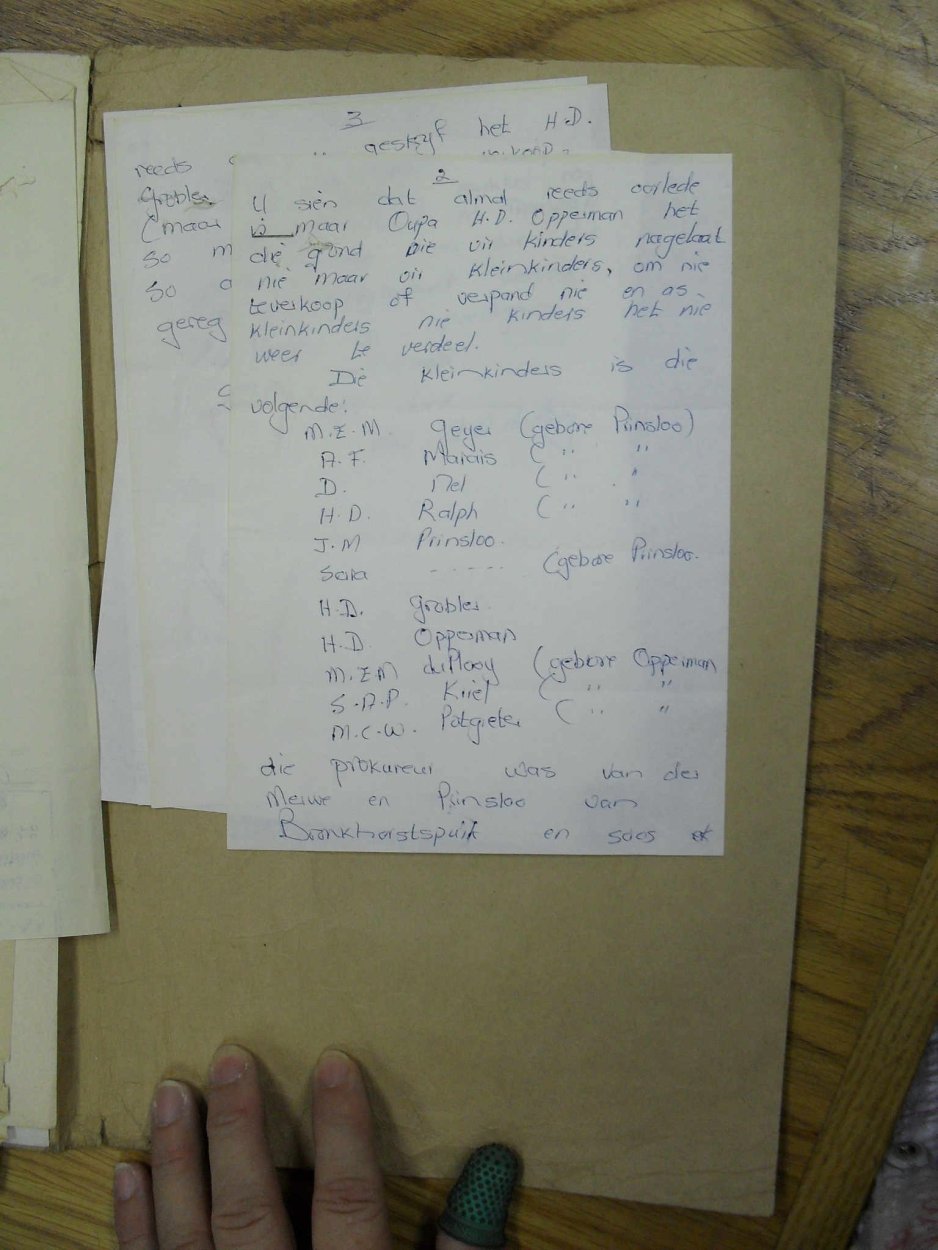 3
reeds geskryf het H.D.
Grobler
(maar
so m
so a
gereg
2
U sien dat almal reeds oorlede
is maar Oupa H.D. Opperman het
die grond nie vir kinders nagelaat
nie maar vir kleinkinders, om nie
teverkoop of verpand nie en as
kleinkinders nie kinders het nie
weer te verdeel.
Die kleinkinders is die
volgende:
M.E.M. Geyer (gebore Prinsloo)
A.F. Marais ( " "
D. Nel ( " "
H.D. Ralph ( " "
J.M Prinsloo.
Sara - - - - - (gebore Prinsloo.
H.D. Grobler.
H.D. Opperman
M.E.M duPlooy (gebore Opperman
S.A.P. Kriel ( " "
M.C.W. Potgieter ( " "
die prokureur was van der
Merwe en Prinsloo van
Bronkhorstspuit en soos ek